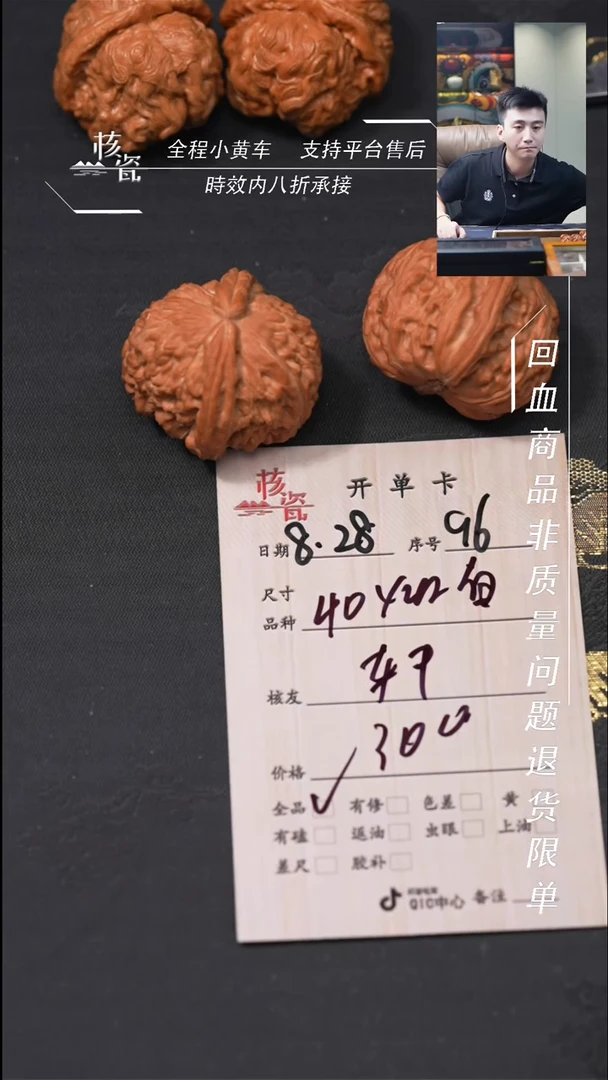 核瓷
全程小黄车 支持平台售后
時效内八折承接
回血商品非质量问题退货限单
核瓷
开单卡
日期 8.28 序号 96
尺寸
品种 40
核友
价格 300
全品 ✓ 有修 色差 黄
有磕 返油 虫眼 上油
差尺 胶补
QIC中心 备注